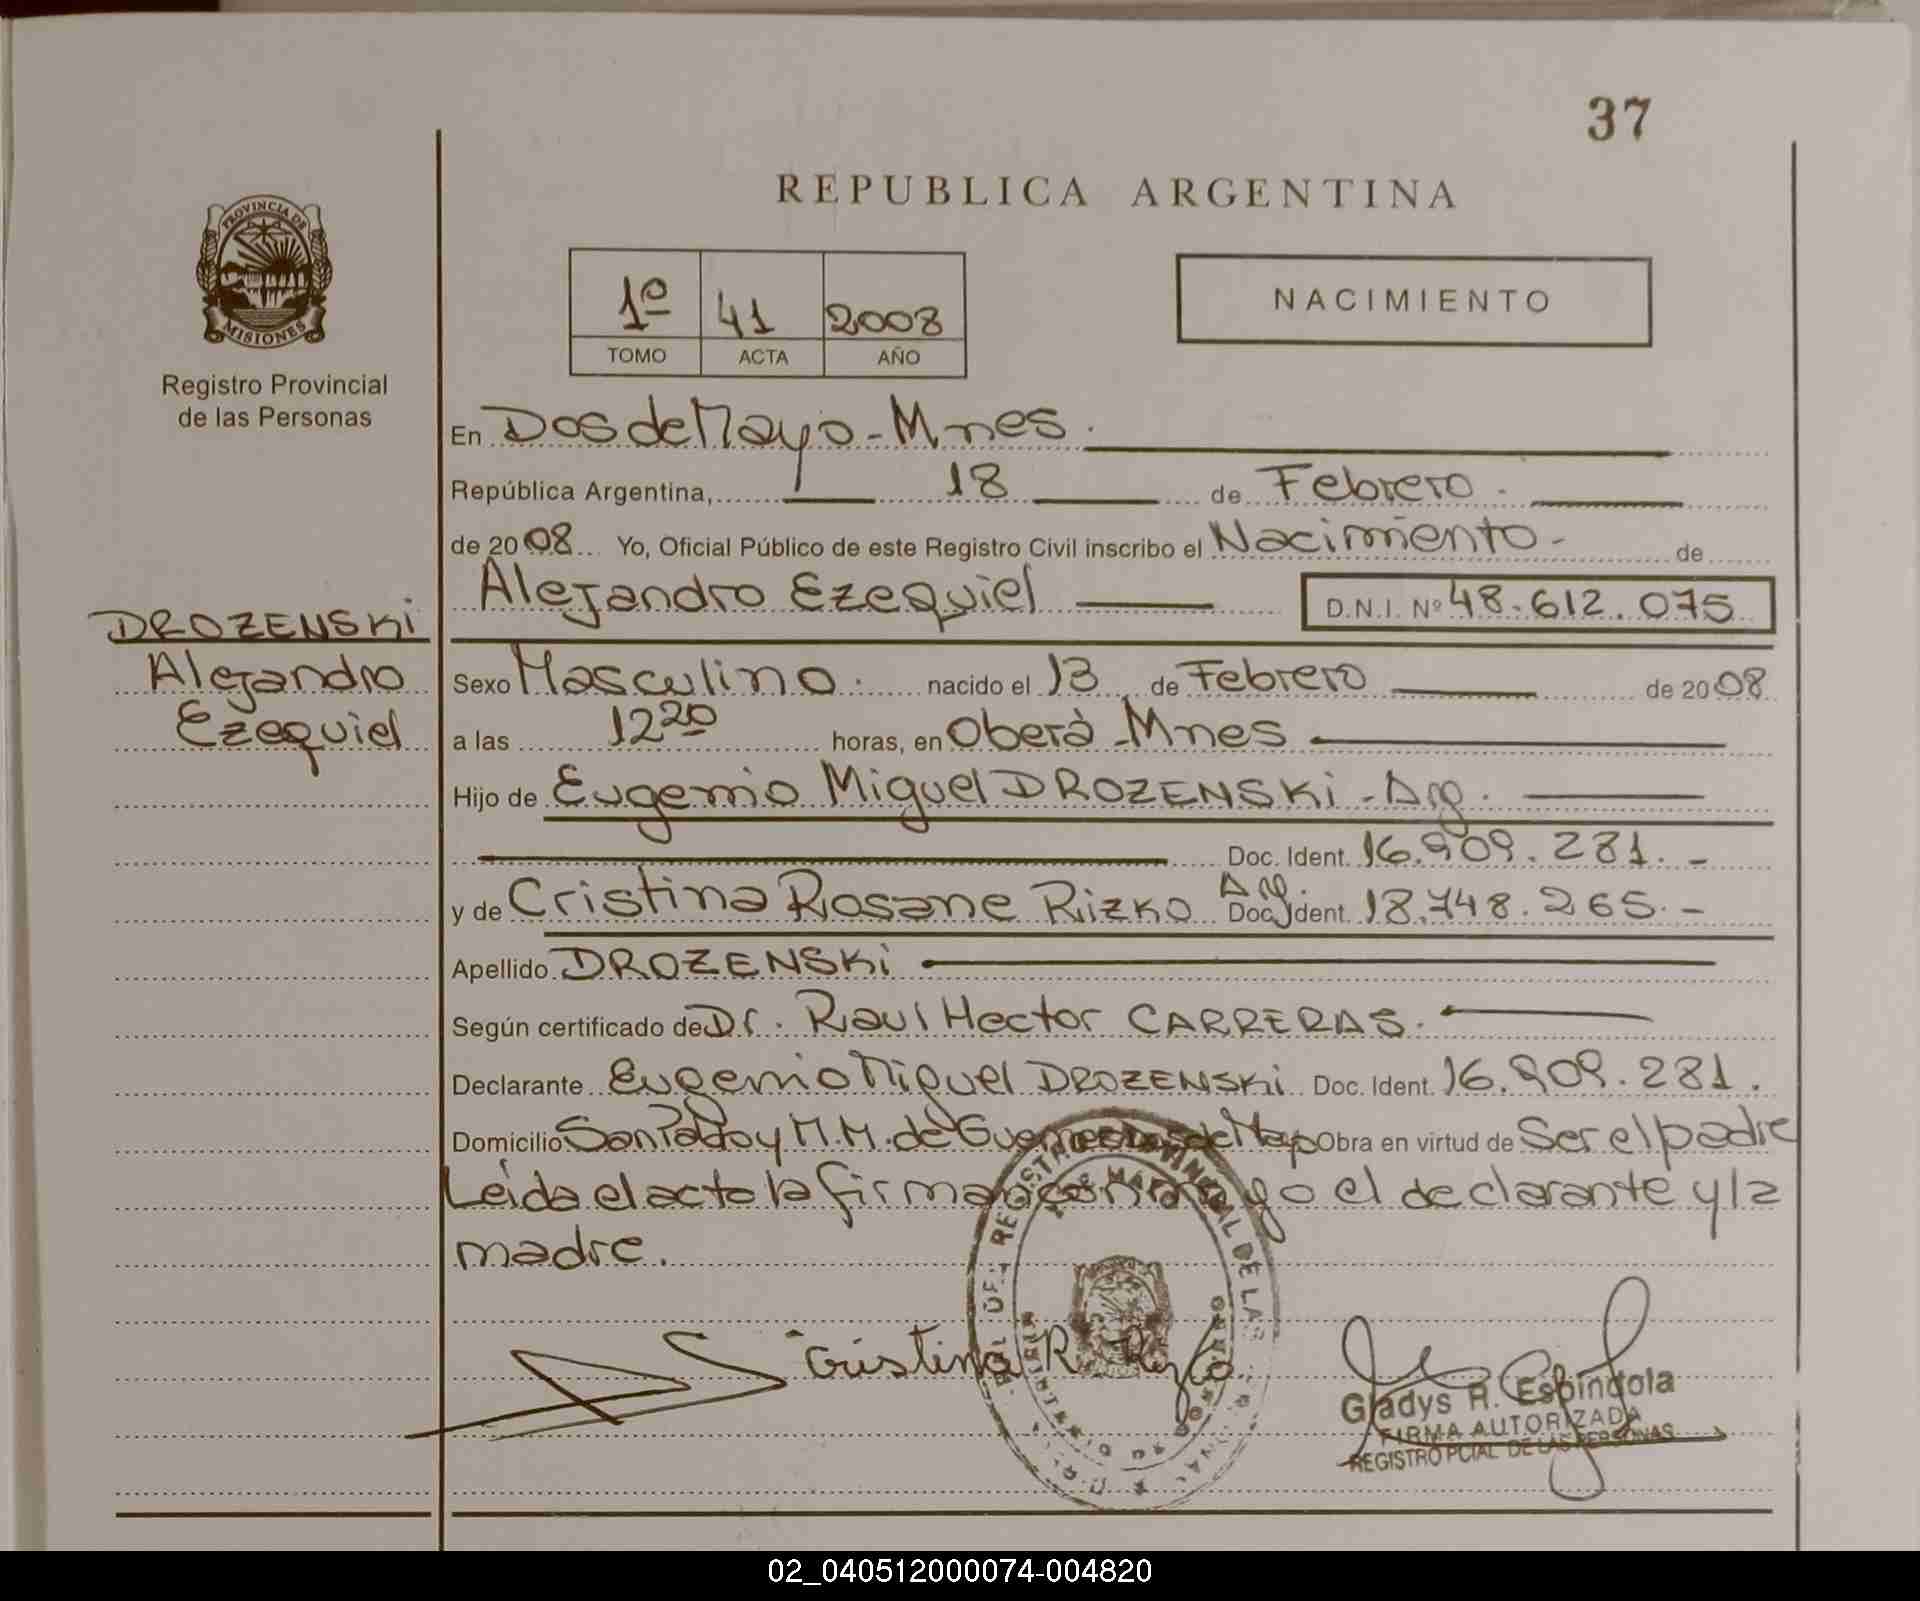 37
REPUBLICA ARGENTINA
PROVINCIA DE
MISIONES
Registro Provincial
de las Personas
1º 41 2008
TOMO ACTA AÑO
NACIMIENTO
En Dos de Mayo - Mnes.
República Argentina, 18 de Febrero.
de 2008 Yo, Oficial Público de este Registro Civil inscribo el Nacimiento - de
Alejandro Ezequiel D.N.I. Nº 48.612.075
DROZENSKi
Alejandro
Ezequiel
Sexo Masculino. nacido el 13 de Febrero de 2008
a las 12 20 horas, en Oberá - Mnes
Hijo de Eugenio Miguel DROZENSKi - Arg.
Doc. Ident. 16.909.281.-
y de Cristina Rosane Rizko Arg. Doc. Ident. 18.748.265.-
Apellido DROZENSKi
Según certificado de Dr. Raul Hector CARRERAS.
Declarante Eugenio Miguel DROZENSKi Doc. Ident. 16.909.281.
Domicilio San Pablo y M.M. de Dos de Mayo Obra en virtud de Ser el padre
Leída el acta la firman conmigo el declarante y la
madre.
REGISTRO PROVINCIAL DE LAS
Cristina R.
Gladys R. Espindola
FIRMA AUTORIZADA
REGISTRO PCIAL DE LAS PERSONAS
02_040512000074-004820